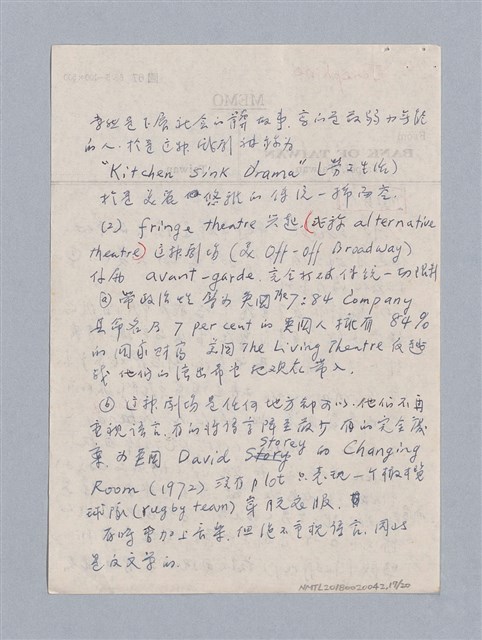 MEMO
BANK OF TAIWAN
是下層社會的 故事,
的人,於是這種戲劇被稱為
"Kitchen Sink Drama" (勞工生活)
於是 的傳統一掃而空。
(2) fringe theatre 興起,(或稱 alternative
theatre) 這種劇場 (美 Off-off Broadway)
avant-garde. 完全打破傳統一切限制
ⓐ 帶政治性 英國 7:84 Company
其命名乃 7 per cent 的英國人擁有 84%
的國家財富 美國 The Living Theatre 反越
戰 他們的演出常把觀眾帶入。
ⓑ 這種劇場是任何地方都可以,他們不再
重視語言,有的將語言降至最少 有的完全廢
棄 英國 David Storey 的 Changing
Room (1972) 沒有 plot 只表現一個橄欖
球隊 (rugby team) 穿脫衣服,
有時暫加上音樂,但絕不重視語言,因此
是反文學的。
NMTL20180020042, 17/20